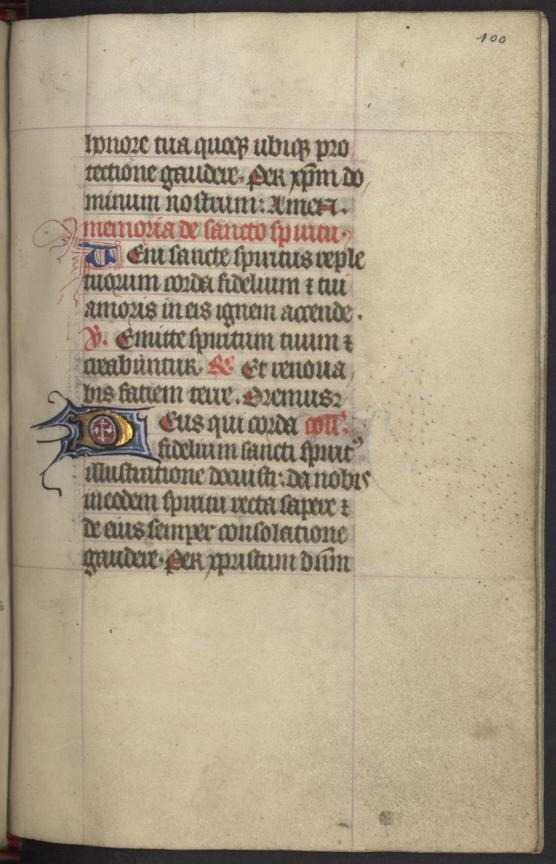 100
honore tua quoqꝫ ubiqꝫ pro
tectione gaudere. Per xp̄m do
minum nostrum: Amen.
memoria de sancto spiritu.
Ueni sancte spiritus reple
tuorum corda fidelium ⁊ tui
amoris in eis ignem accende.
℣. Emitte spiritum tuum ⁊
creabuntur. ℟. Et renoua
bis faciem terre. Oremus
Deus qui corda coll'.
fidelium sancti spiritꝰ
illustratione docuisti: da nobis
in eodem spiritu recta sapere ⁊
de eius semper consolatione
gaudere. Per xpristum dn̄m